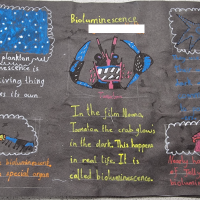 Bioluminescence
plankton
nescence is
iving thing
es its own.
In the film Moana,
Tamatoa the crab glows
in the dark. This happens
in real life. It is
called bioluminescence.
bioluminescent
special organ
Nearly
of Jell
biolumin